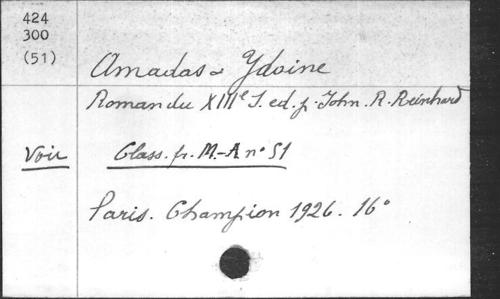 424
300
(51)
Amadas & Ydoine
Roman du XIIIe S. ed. p. John. R. Reinhard
Voir Class. fr. M.-A n° 51
Paris. Champion 1926. 16°